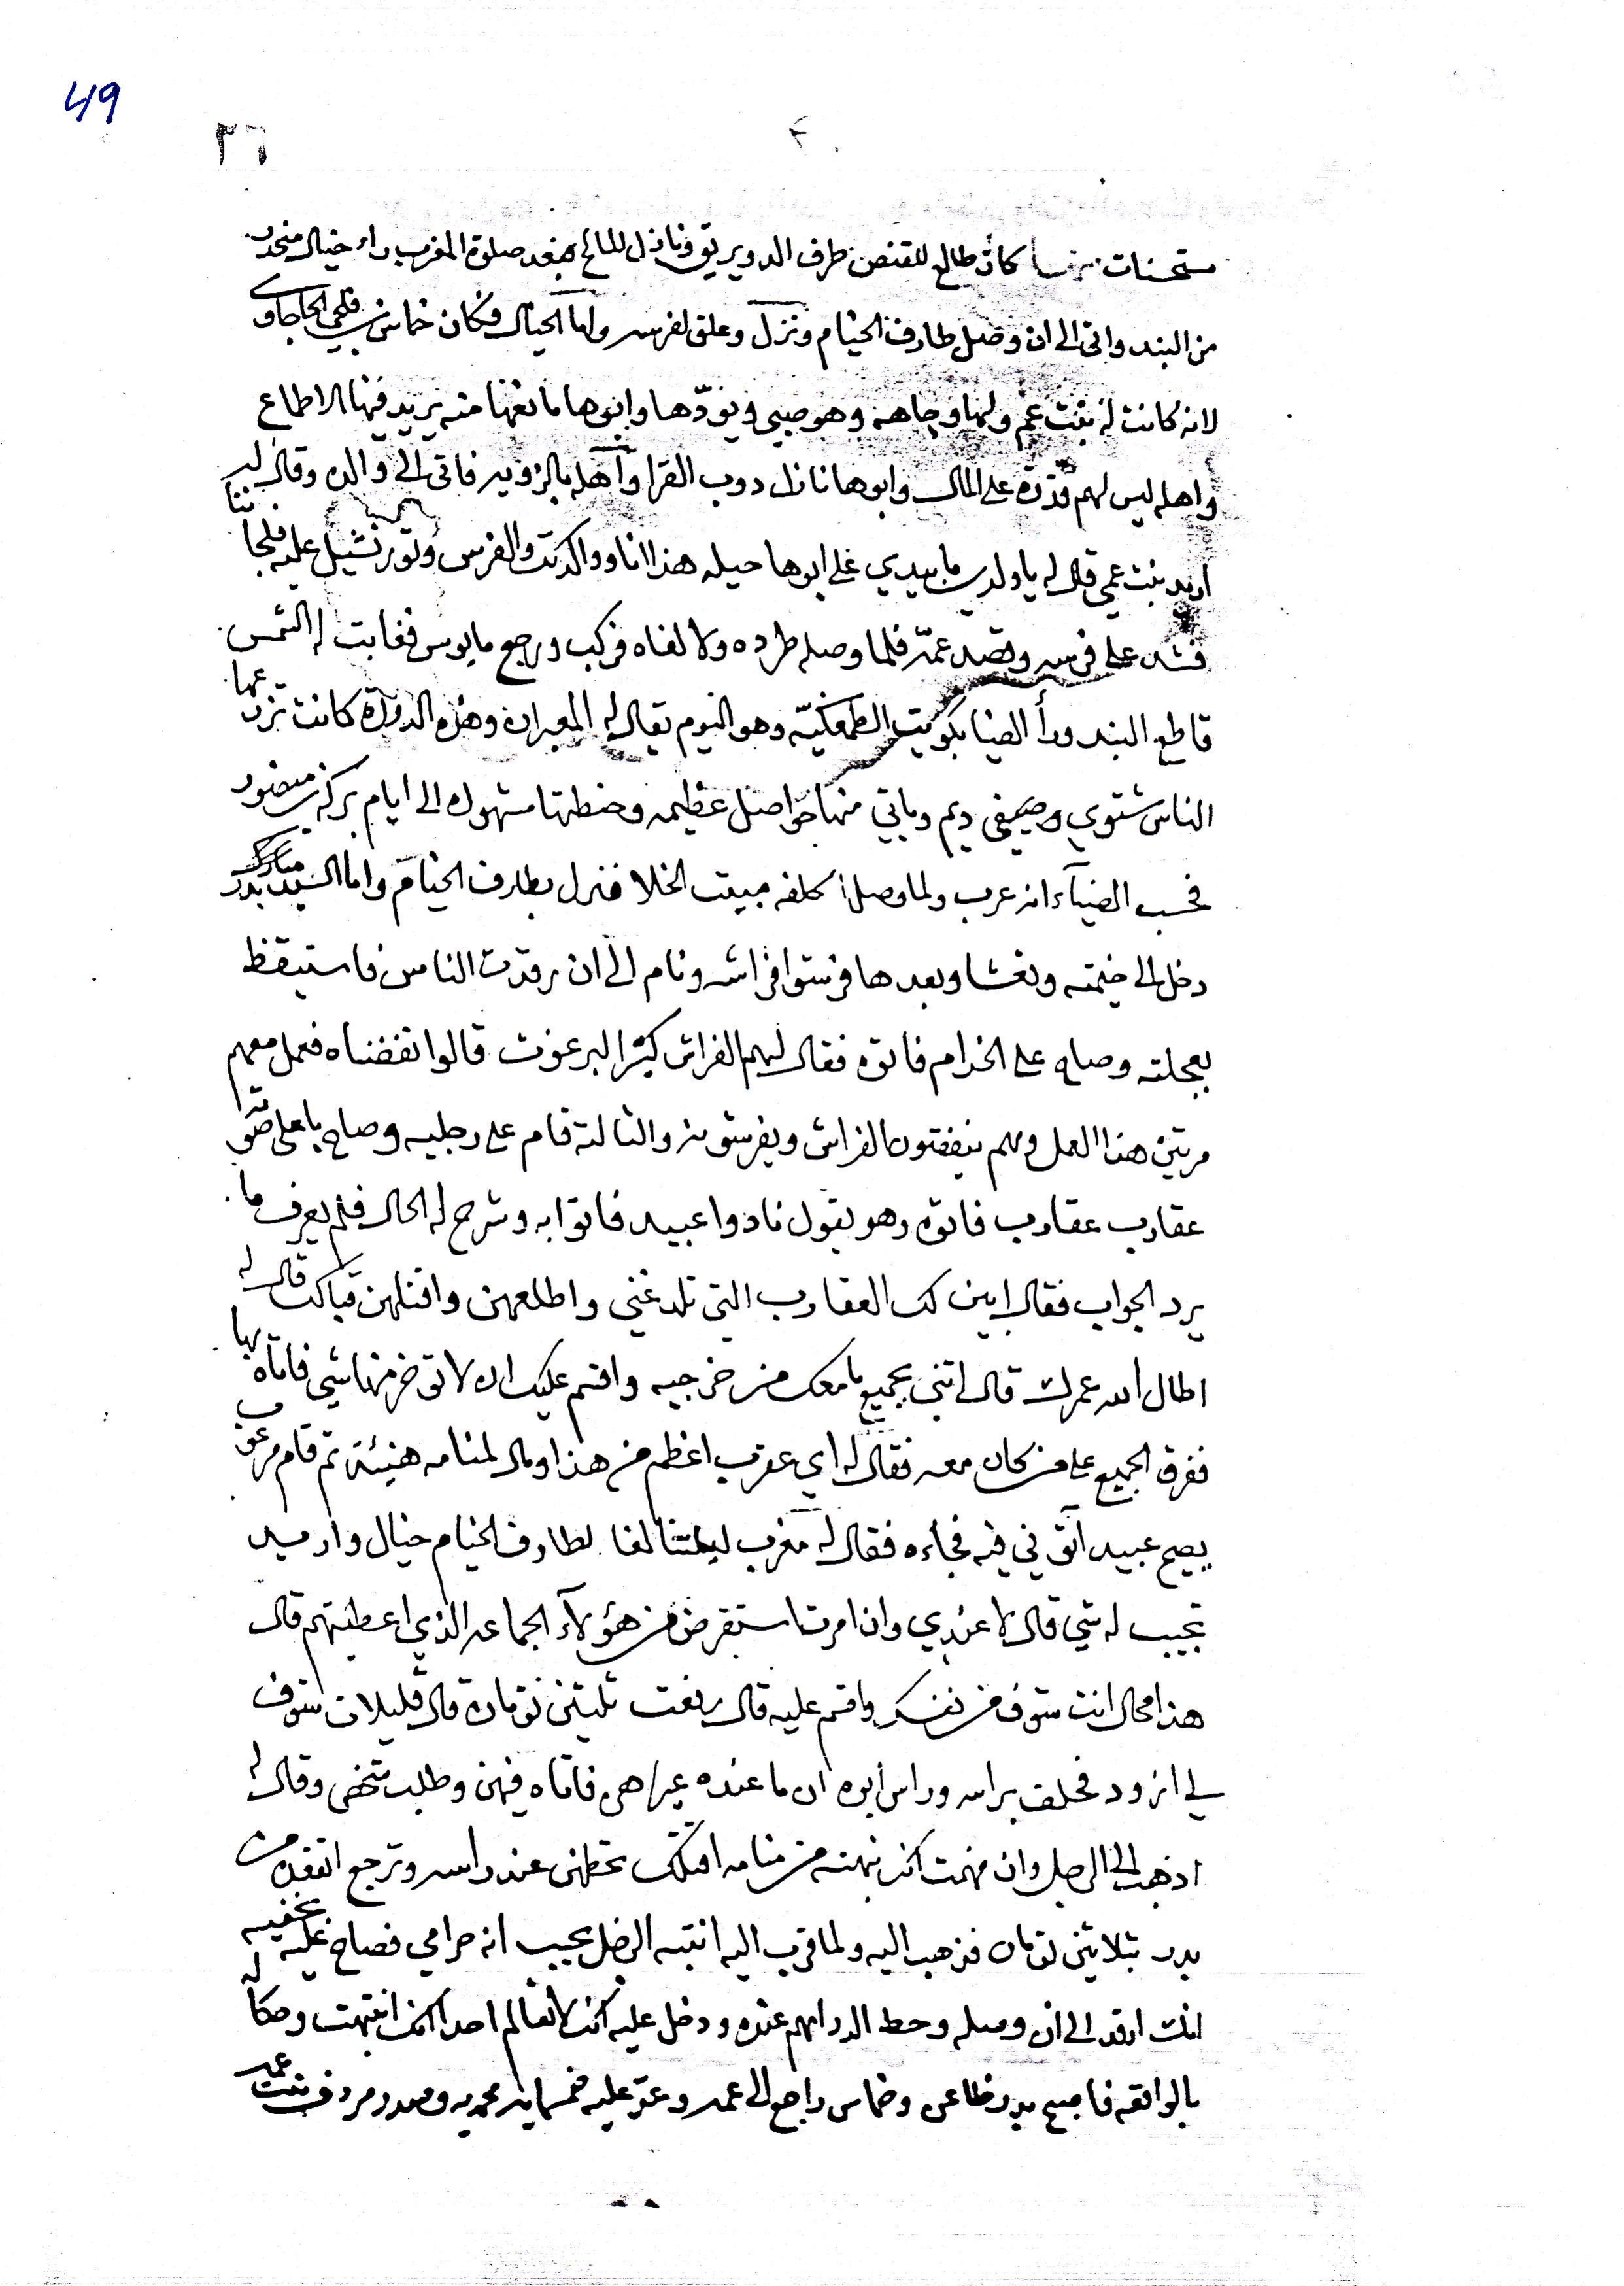 49
٣٦
مستحسنات كان طالع للقنص طرف الدويريق ونازل للمائح فبعد صلوة المغرب راء خيال منحدر
من البند واتى الى ان وصل طارف الخيام ونزل وعلق لفرسه واما الخيال فكان خماس بن فلحي الحاجاوي
لانه كانت له بنت عم ولها وجاهه وهو صبي ويودّها وابوها مانعها منه يريد فيها الاطماع
واهله ليس لهم قدره على المال وابوها نازل دوب القرا واهله بالزوير فاتى الى والده وقال له
اريد بنت عمي قال له ياولدي ما بيدي على ابوها حيله هذا انا ووالدتك والفرس وثور نشيل عليه فلجا
فشد على فرسه وقصد عمّه فلما وصله طرده ولا لفاه فركب ورجع مايوس فغابت له الشمس
قاطع البند ورأ الضيا بكويت الطمعكيّه وهو اليوم يقال له المعبران وهذه الدورة كانت تزرعها
الناس شتوي وصيفي ديم وياتي منها حواصل عظيمه وحنطتها مشهوره الى ايام بركة بن منصور
فحسب الضياء انه عرب ولما وصل كلفه مبيت الخلا فنزل بطارف الخيام واما السيد مبارك بدر
دخل الى خيمته وتعشا وبعدها فرشوا فراشه ونام الى ان رقدت الناس فاستيقظ
بعجلته وصاح على الخدام فاتوه فقال لهم الفراش كثير البرغوث قالوا نفضناه فعمل معهم
مرتين هذا العمل وهم ينفضون الفراش ويفرشونه والثالثه قام على رجليه وصاح باعلى صوته
عقارب عقارب فاتوه وهو يقول نادوا عبيد فاتوا به وشرح له الحال فلم يعرف ما
يرد الجواب فقال اين لك العقارب التي تلدغني واطلعهن واقتلهن قبالك قال له
اطال الله عمرك قال اتني بجميع ما معك من خرجيه واقسم عليك ان لا توخر منها شي فاتاه بها
ففرق الجميع على من كان معه فقال له اي عقرب اعظم من هذا ومال لمنامه هنيئة ثم قام مرعوب
يصيح عبيد آتوني فيه فجاءه فقال له مغرب ليلتنا لفا لطارف الخيام خيال واريد
تجيب له شي قال لا عندي وان امرت استقرض من هؤلاء الجماعه الذي اعطيتهم قال
هذا محال انت شوف من نفسك واقسم عليه قال رفعت ثلثين تومان قال قليلات شوف
لي ازود فحلف براسه وراس ابوه ان ما عنده غيراهن فاتاه فيهن وطلب شخص وقال له
اذهب الى الرجل وان فهمت انك نبهته من منامه اقتلك تحطهن عند راسه وترجع انفقده من
بدر بثلاثين تومان فذهب اليه ولما قرب اليه انتبه الرجل يحسب انه حرامي فصاح عليه بخفيه
انت ارقد الى ان وصله وحط الدراهم عنده ودخل عليه انك لا تعالم احد انك انتبهت وحكا له
بالواقعه فاصبح بدر ظاعن وخماس راجع الى عمه وعدّ عليه خمسمايه محمديه وصدر مردف بنت عمه